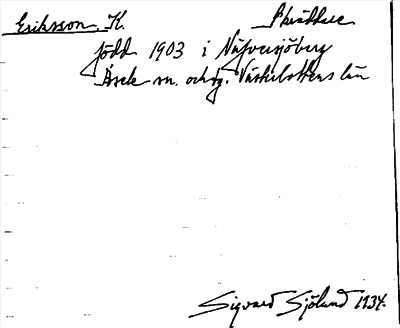 Eriksson, K. Skräddare
född 1903 i Näfversjöberg
Åsele sn. och sg. Västerbottens län
Sigvard Sjölund 1934.